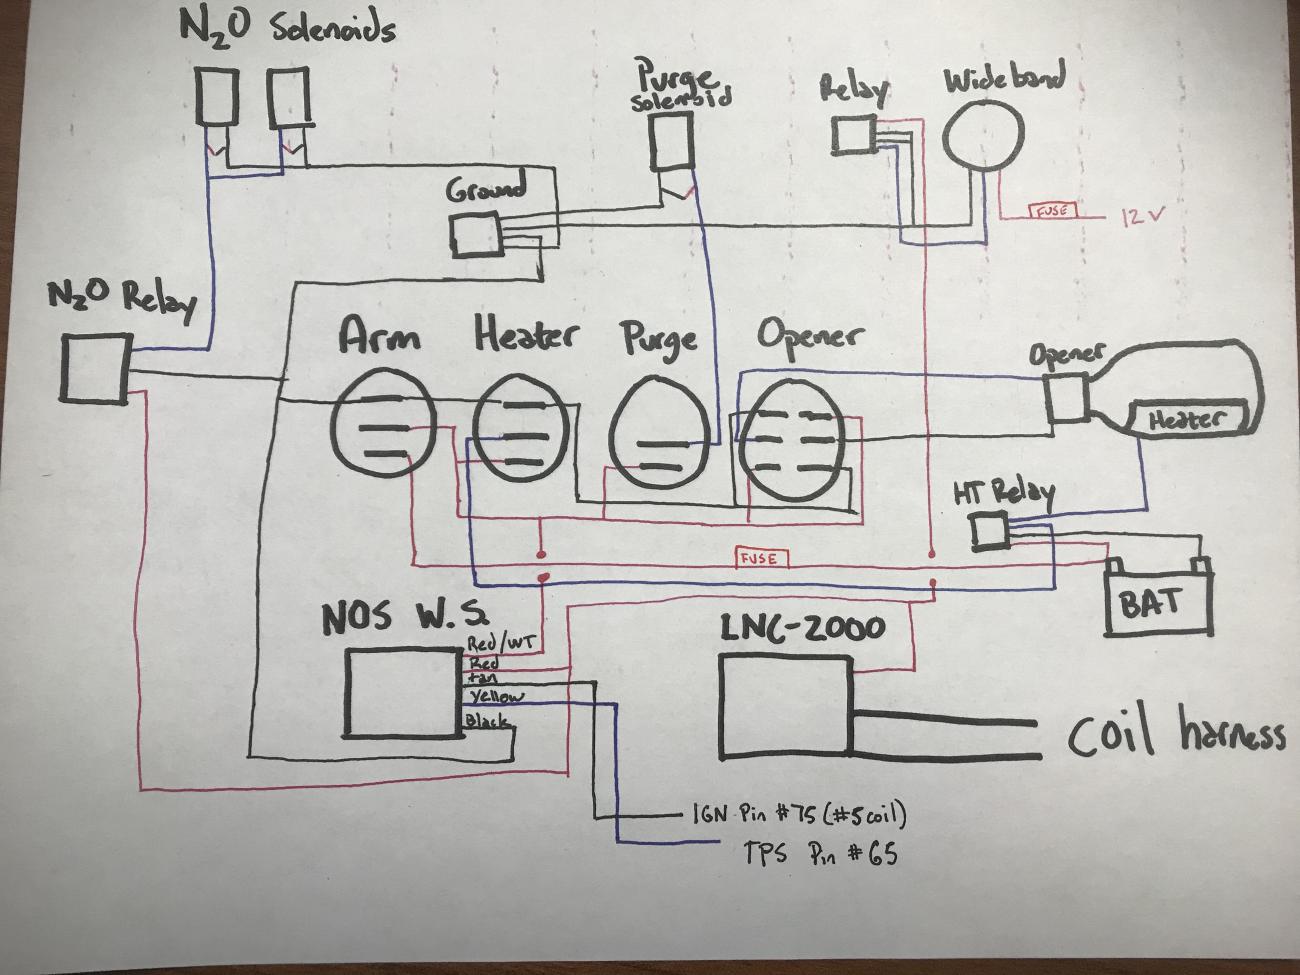 N2O Solenoids
Purge
Solenoid
Relay
Wideband
Ground
FUSE
12V
N2O Relay
Arm
Heater
Purge
Opener
Opener
Heater
HT Relay
FUSE
BAT
NOS W.S.
Red/WT
Red
tan
Yellow
Black
LNC-2000
Coil harness
IGN Pin #75 (#5 coil)
TPS Pin #65